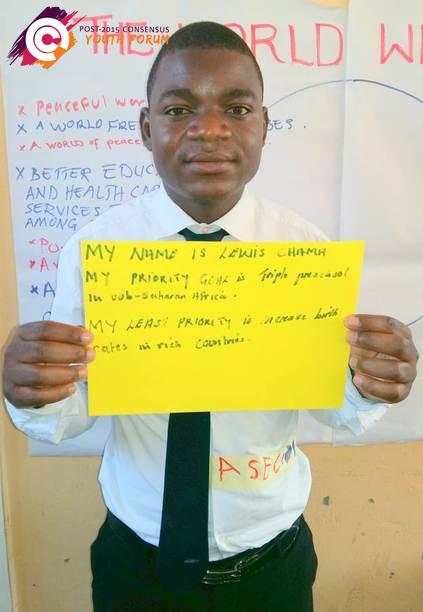 POST-2015 CONSENSUS
YOUTH FORUM
THE WORLD WE
x Peaceful wor
x A WORLD FRE
x A WORLD of peace
x BETTER EDUC
AND HEALTH CAR
SERVICES
AMONG
MY NAME IS LEWIS CHAMA
MY PRIORITY GOAL is Triple preschool
In sub-Saharan Africa.
MY LEAST PRIORITY is increase birth
rates in rich countries.
A SEC